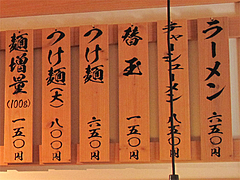 ラーメン 六五〇円
チャーシューメン 八五〇円
替玉 一五〇円
つけ麺 六五〇円
つけ麺(大) 八〇〇円
麺増量(100g) 一五〇円